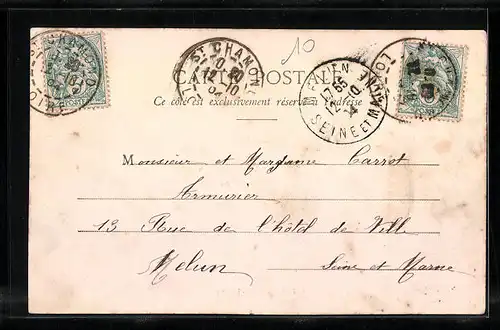 10
ST CHAMOND
CARTE POSTALE
Ce côté est exclusivement réservé à l'adresse
MELUN
SEINE ET MARNE
Monsieur et Madame Carrot
Armurier
13 Rue de l'hôtel de Ville
Melun
Seine et Marne